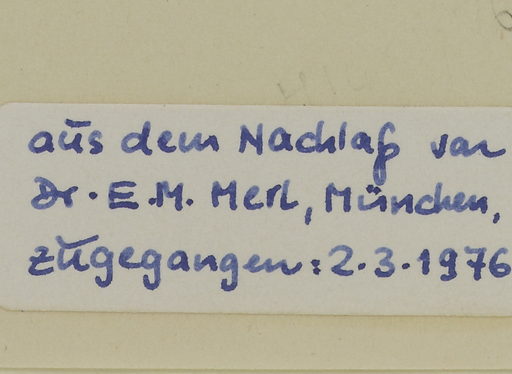 aus dem Nachlaß von
Dr. E.M. Merl, München,
zugegangen: 2.3.1976